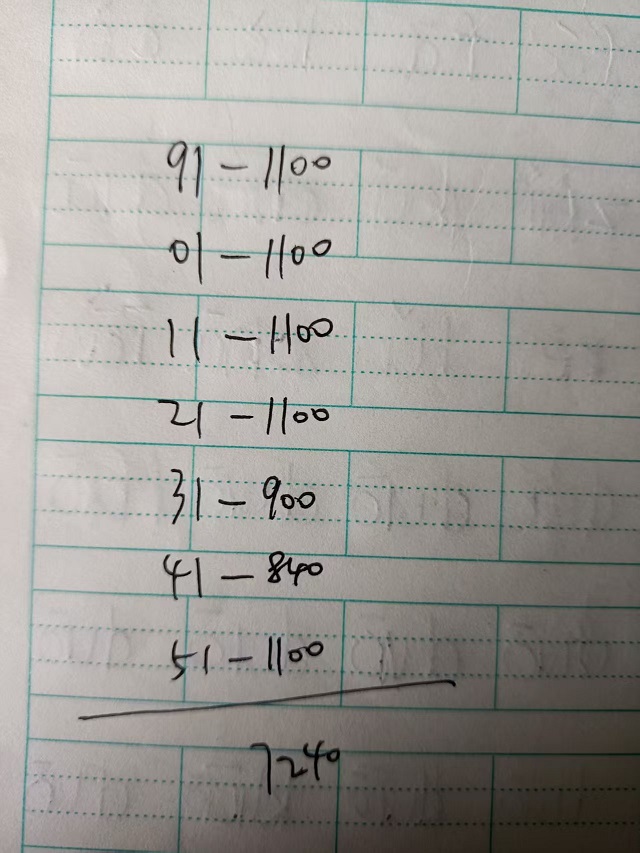 91 - 1100
01 - 1100
11 - 1100
21 - 1100
31 - 900
41 - 840
51 - 1100
7240